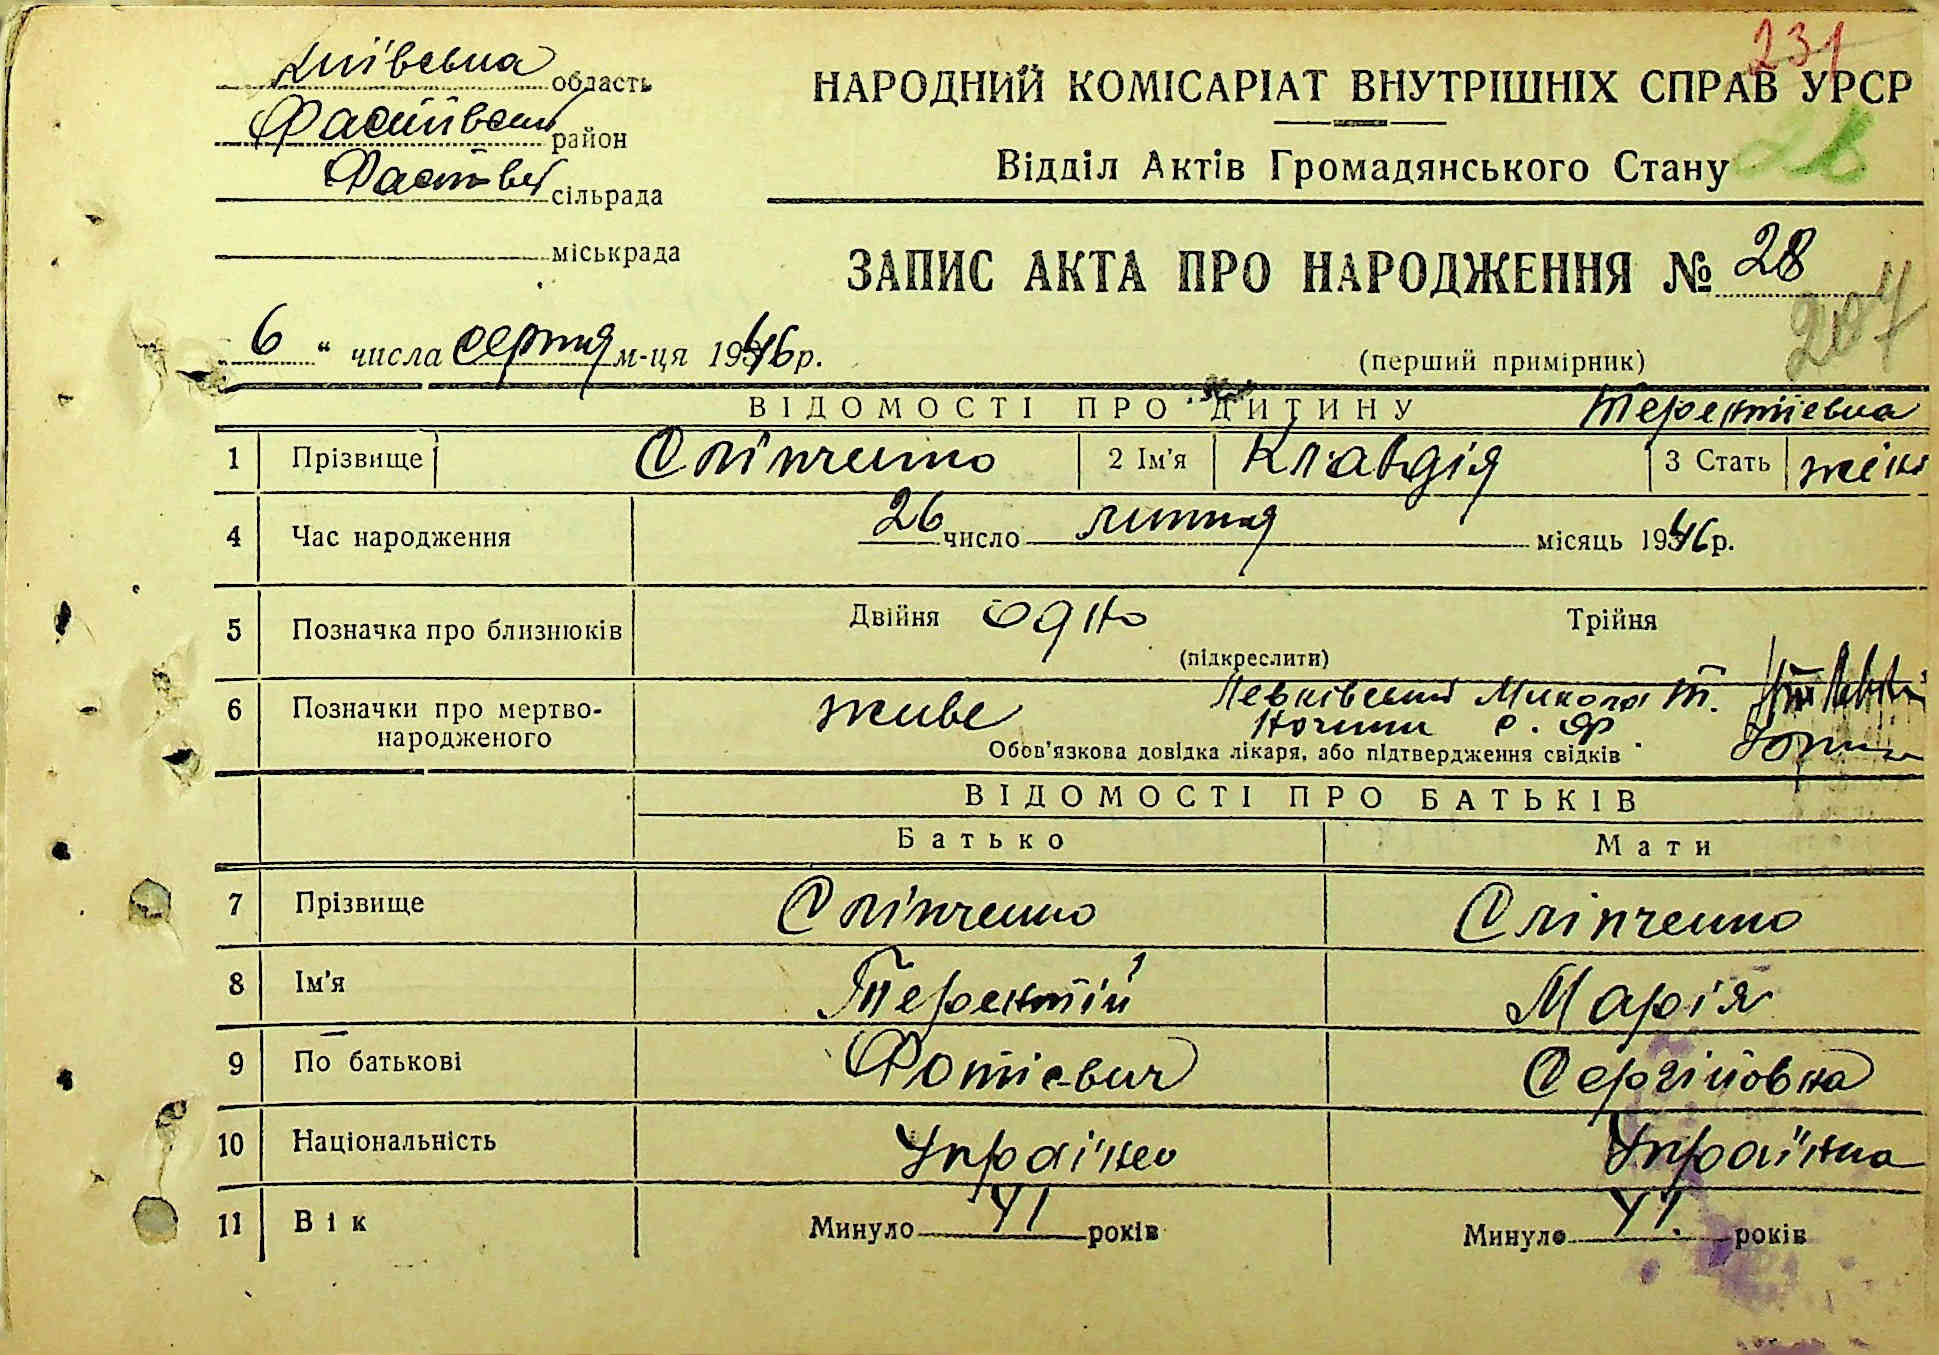 231
Київська область
НАРОДНИЙ КОМІСАРІАТ ВНУТРІШНІХ СПРАВ УРСР
Фастівський район
28
Фастівец сільрада
Відділ Актів Громадянського Стану
міськрада
ЗАПИС АКТА ПРО НАРОДЖЕННЯ № 28
207
6 " числа серпня м-ця 1946 р.
(перший примірник)
ВІДОМОСТІ ПРО ДИТИНУ Терентіевна
1 Прізвище Сліпченко 2 Ім'я Клавдія 3 Стать жін
4 Час народження 26 число липня місяць 1946 р.
5 Позначка про близнюків Двійня одно Трійня
(підкреслити)
6 Позначки про мертво- живе Левківський Микола Т.
народженого
Обов'язкова довідка лікаря, або підтвердження свідків
ВІДОМОСТІ ПРО БАТЬКІВ
Батько Мати
7 Прізвище Сліпченко Сліпченко
8 Ім'я Терентій Марія
9 По батькові Фотіевич Сергійовна
10 Національність Українец Українка
11 Вік Минуло 41 років Минуло 41 років